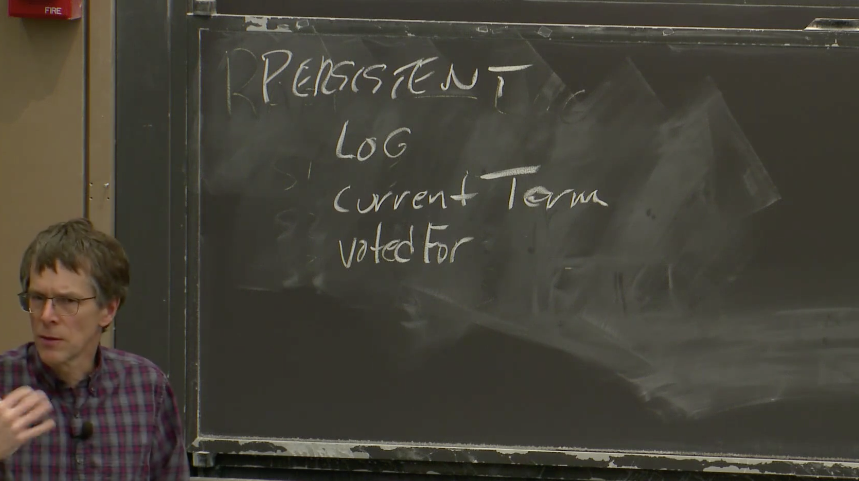 FIRE
PERSISTENT
LOG
currentTerm
votedFor